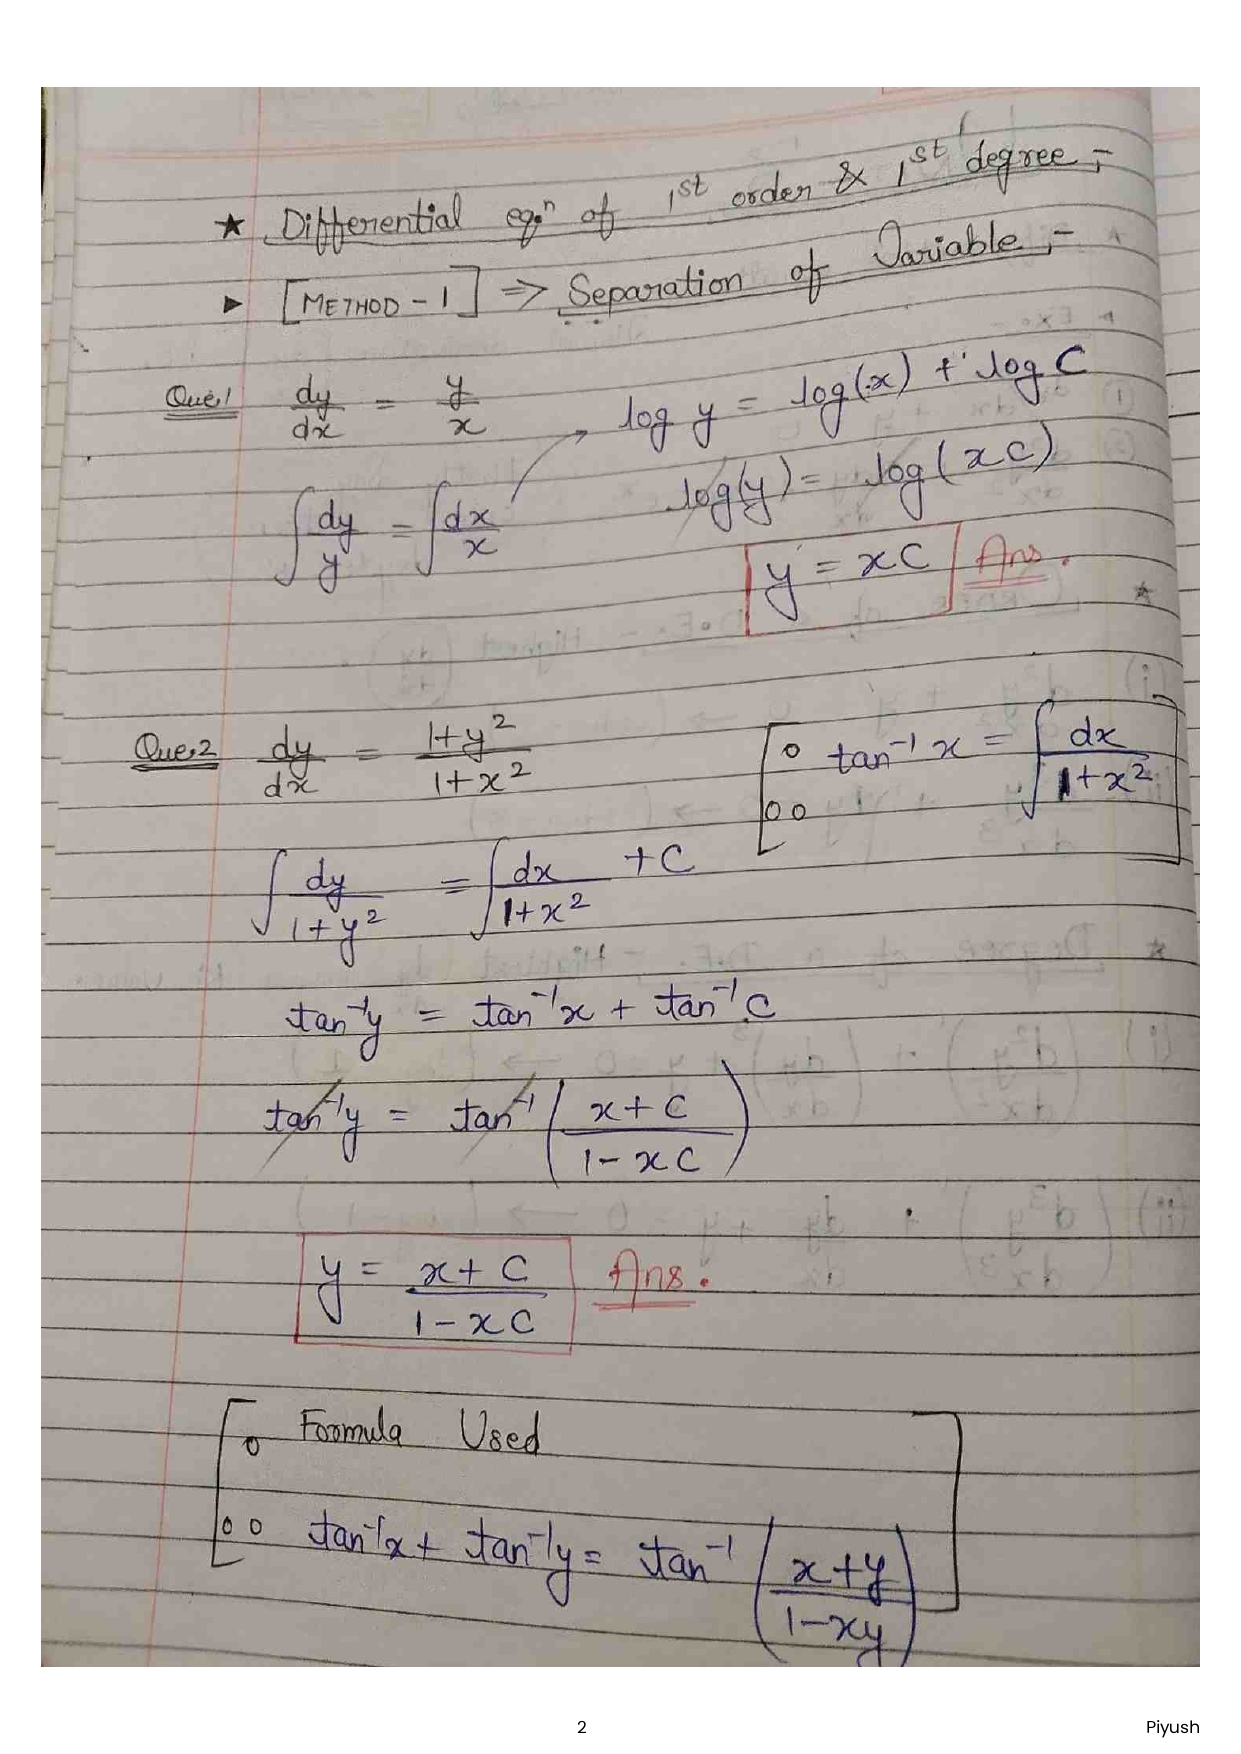 ★ Differential eqⁿ of 1st order & 1st degree :-
▶ [METHOD - 1] ⇒ Separation of Variable :-
Que.1 dy/dx = y/x
∫ dy/y = ∫ dx/x
log y = log(x) + log C
log(y) = log(xC)
y = xC Ans.
Que.2 dy/dx = 1+y²/1+x²
tan⁻¹x = ∫ dx/1+x²
∫ dy/1+y² = ∫ dx/1+x² + C
tan⁻¹y = tan⁻¹x + tan⁻¹C
tan⁻¹y = tan⁻¹(x+C/1-xC)
y = x+C/1-xC Ans.
Formula Used
tan⁻¹x + tan⁻¹y = tan⁻¹(x+y/1-xy)
2 Piyush